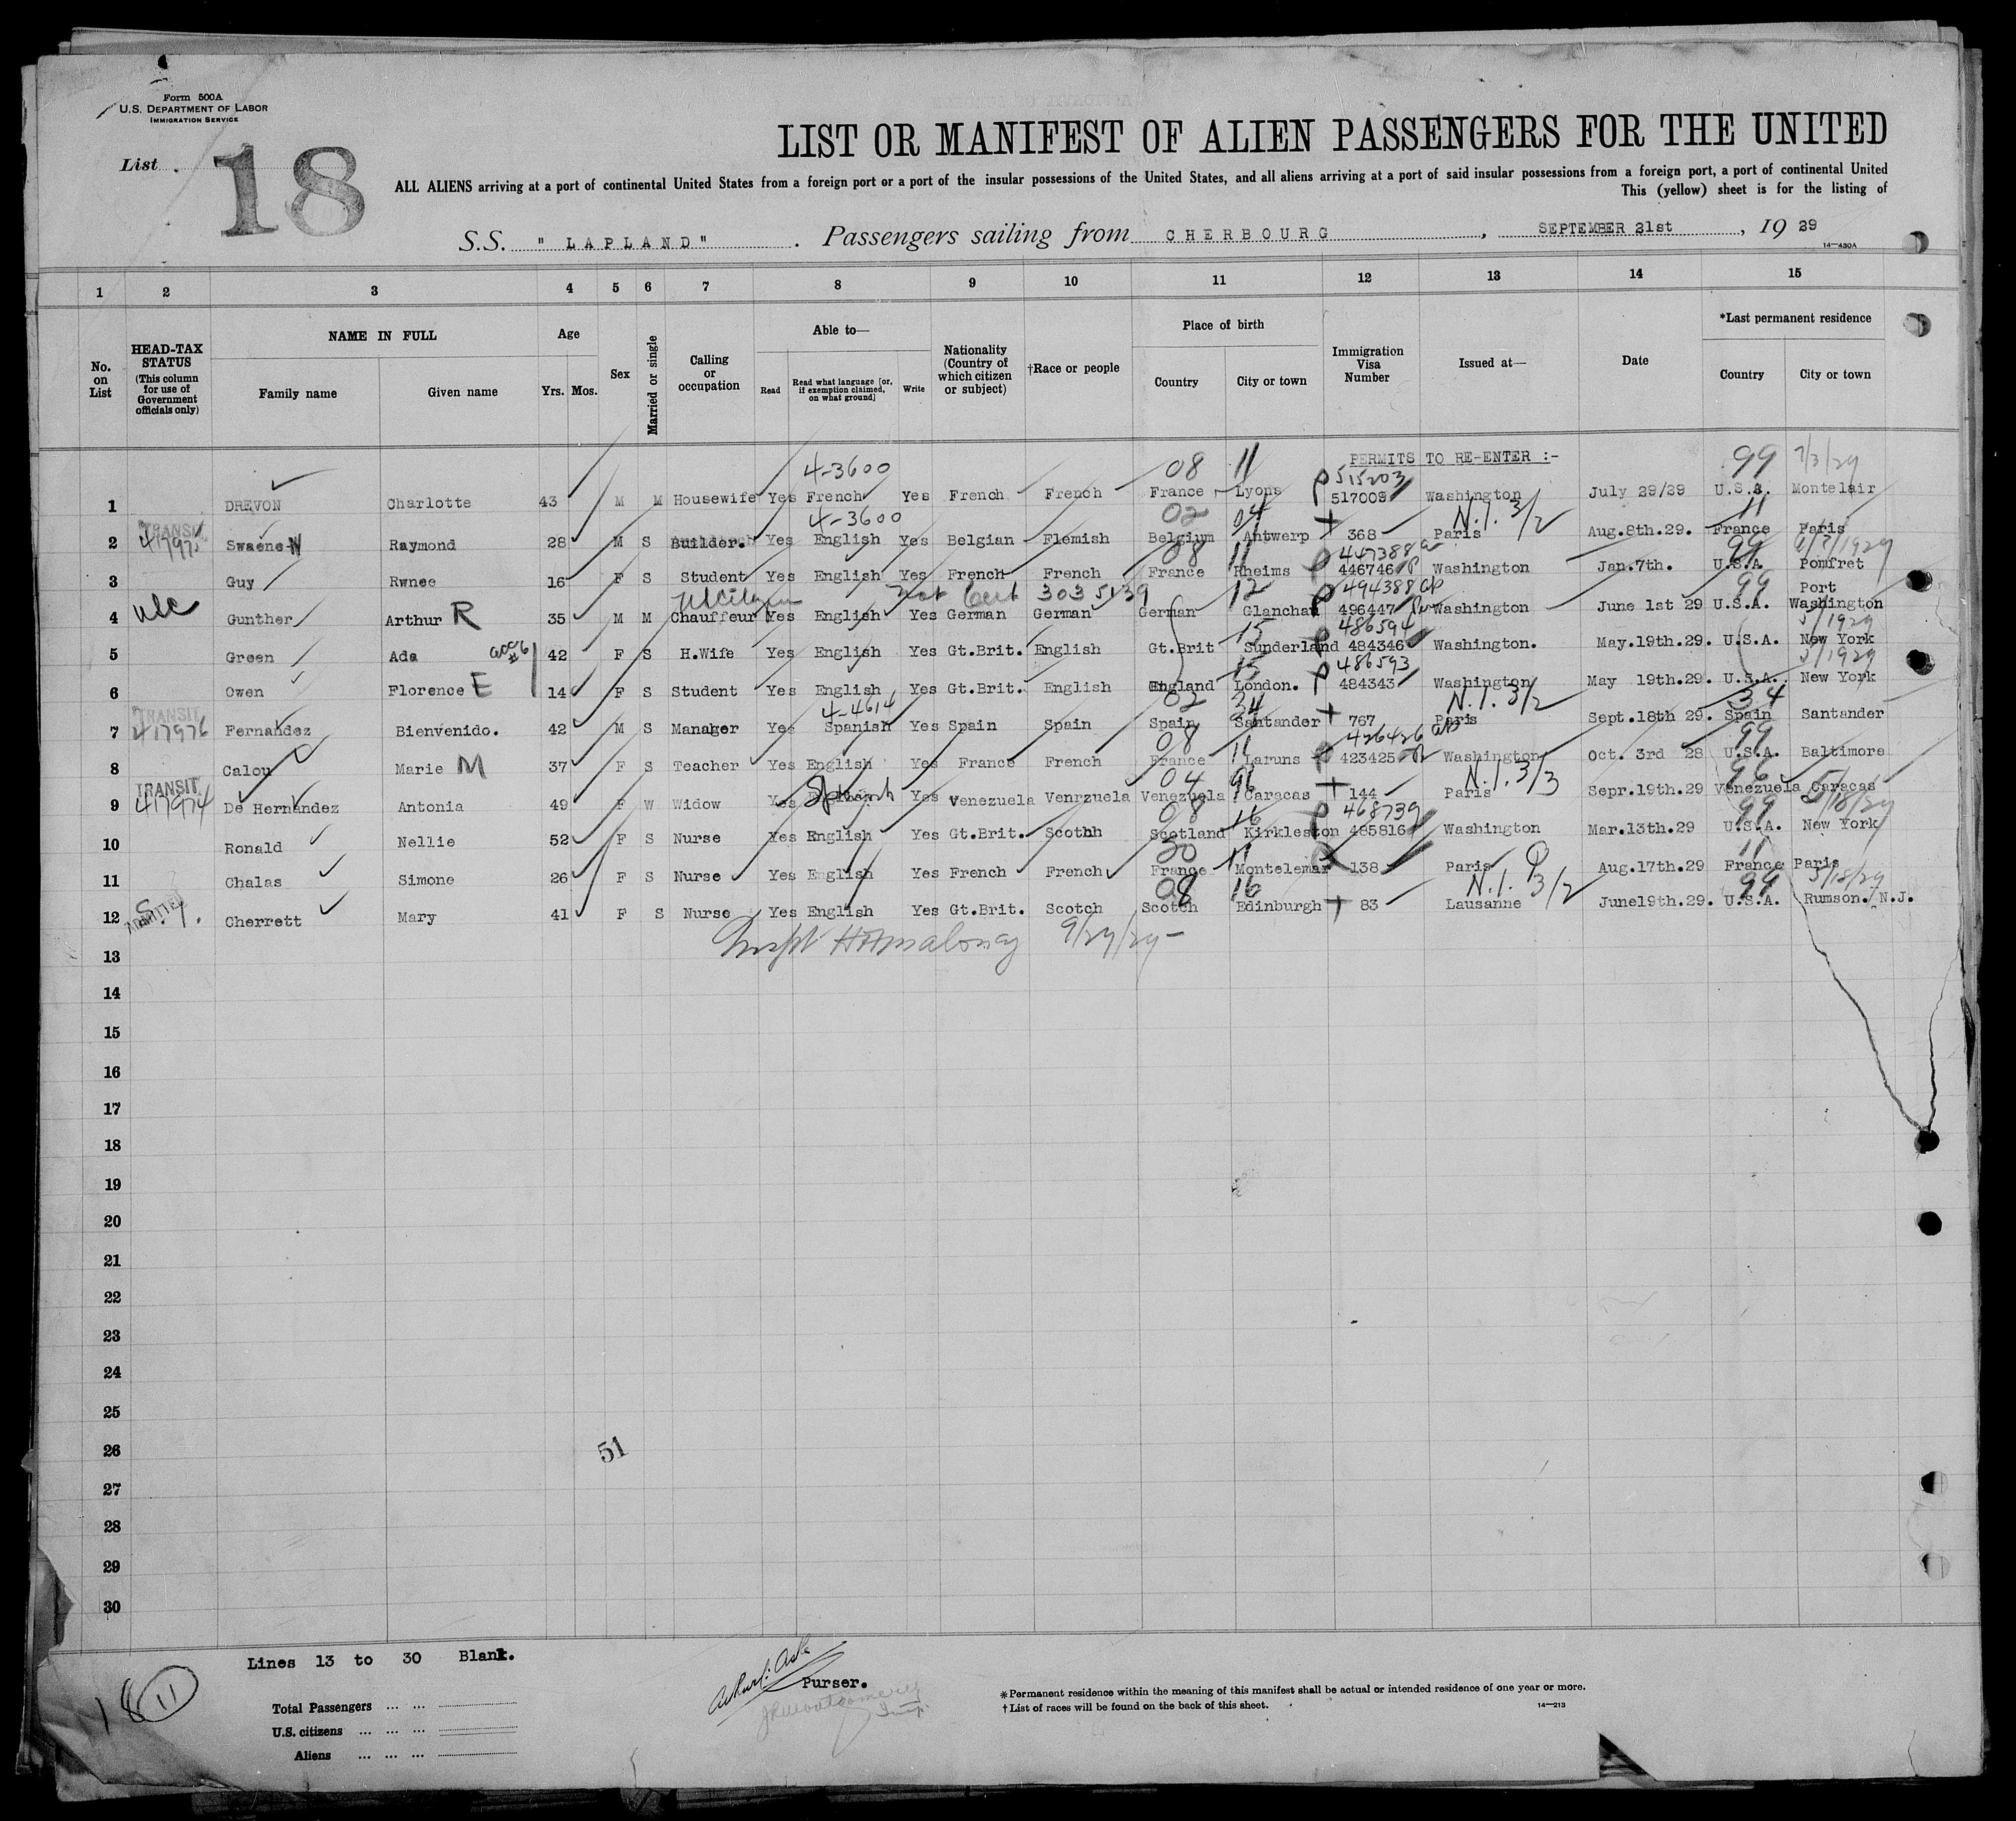 Form 500A
U.S. DEPARTMENT OF LABOR
IMMIGRATION SERVICE
LIST OR MANIFEST OF ALIEN PASSENGERS FOR THE UNITED
List 18
ALL ALIENS arriving at a port of continental United States from a foreign port or a port of the insular possessions of the United States, and all aliens arriving at a port of said insular possessions from a foreign port, a port of continental United
This (yellow) sheet is for the listing of
S.S. "LAPLAND". Passengers sailing from CHERBOURG, SEPTEMBER 21st, 1929
14—430A
1 2 3 4 5 6 7 8 9 10 11 12 13 14 15
No. on List
HEAD-TAX STATUS (This column for use of Government officials only)
NAME IN FULL
Family name Given name
Age
Yrs. Mos.
Sex
Married or single
Calling or occupation
Able to—
Read Read what language [or, if exemption claimed, on what ground] Write
Nationality (Country of which citizen or subject)
†Race or people
Place of birth
Country City or town
Immigration Visa Number
Issued at—
Date
*Last permanent residence
Country City or town
PERMITS TO RE-ENTER :-
4-3600 08 11 P 515203 99 7/3/29
1 DREVON Charlotte 43 M M Housewife Yes French Yes French French France Lyons 517009 Washington July 29/29 U.S.a. Montelair
TRANSIT 4-3600 02 04 N.I. 3/2 11
2 417975 Swaene N Raymond 28 M S Builder. Yes English Yes Belgian Flemish Belgium Antwerp + 368 Paris Aug.8th.29. France Paris
08 11 P 447388 99
3 Guy Rwnee 16 F S Student Yes English Yes French French France Rheims 446746 Washington Jan.7th. U.S.A. Pomfret
USCitizen Nat Cert 3035139 12 P 494388 99 Port
4 USC Gunther Arthur R 35 M M Chauffeur Yes English Yes German German German Glanchau 496447 Washington June 1st 29 U.S.A. Washington
15 486594 5/1929
5 Green Ada acc #6 42 F S H.Wife Yes English Yes Gt.Brit. English Gt.Brit Sunderland 484346 Washington. May.19th.29. U.S.A. New York
15 P 486593 5/1929
6 Owen Florence E 14 F S Student Yes English Yes Gt.Brit. English England London. 484343 Washington May 19th.29. U.S.A. New York
TRANSIT 4-4614 02 34 N.I. 3/2 34
7 417976 Fernandez Bienvenido. 42 M S Manager Yes Spanish Yes Spain Spain Spain Santander + 767 Paris Sept.18th 29. Spain Santander
08 11 426426 99
8 Calou Marie M 37 F S Teacher Yes English Yes France French France Laruns 423425 Washington Oct. 3rd 28 U.S.A. Baltimore
TRANSIT Spanish 04 96 N.I. 3/3 96
9 417974 De Hernandez Antonia 49 F W Widow Yes Yes Venezuela Venrzuela Venezuela Caracas + 144 Paris Sepr.19th.29 Venezuela Caracas
08 16 P 468739 99 5/18/29
10 Ronald Nellie 52 F S Nurse Yes English Yes Gt.Brit. Scothh Scotland Kirkleston 465816 Washington Mar.13th.29 U.S.A. New York
20 11 11
11 Chalas Simone 26 F S Nurse Yes English Yes French French France Montelemar 138 Paris Aug.17th.29 France Paris
ADMITTED 08 16 N.I. 3/2 99 5/18/29
12 S.I. Cherrett Mary 41 F S Nurse Yes English Yes Gt.Brit. Scotch Scotch Edinburgh + 83 Lausanne June19th.29. U.S.A. Rumson. N.J.
Inspt HAMaloney 9/29/29-
13
14
15
16
17
18
19
20
21
22
23
24
25
26 51
27
28
29
30
Lines 13 to 30 Blank.
18 11
Total Passengers ... ...
U.S. citizens ... ... ...
Aliens ... ... ...
Purser.
JRMontgomery
Insp.
*Permanent residence within the meaning of this manifest shall be actual or intended residence of one year or more.
†List of races will be found on the back of this sheet.
14—213